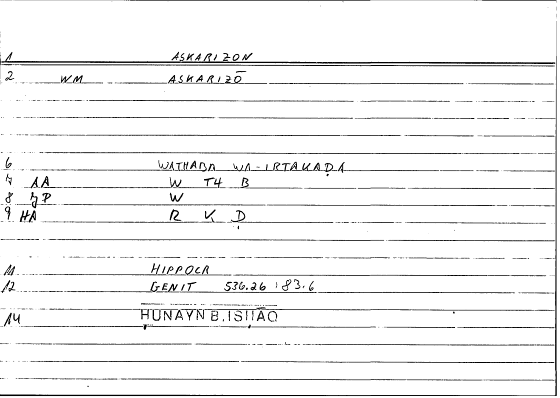 1 ASKARIZON
2 WM ASKARIZŌ
6 WATHABA WA-IRTAKAḌA
7 AA W T4 B
8 7P W
9 HA R K Ḍ
11 HIPPOCR
12 GENIT 536.26 : 83.6
14 ḤUNAYN B.ISḤĀQ